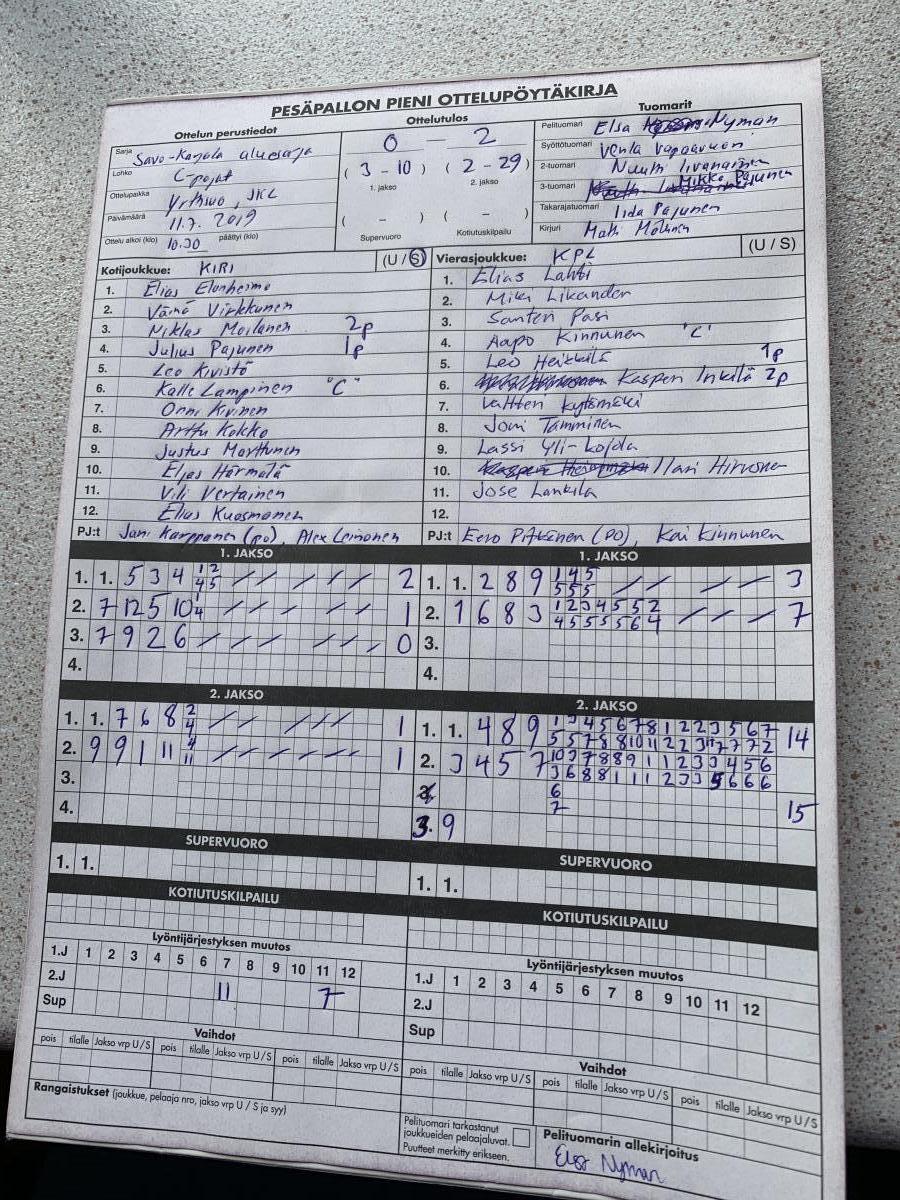 PESÄPALLON PIENI OTTELUPÖYTÄKIRJA
Ottelun perustiedot
Sarja Savo-Karjala aluesarja
Lohko C-pojat
Ottelupaikka , JKL
Päivämäärä 11.7.2019
Ottelu alkoi (klo) 10.30 päättyi (klo)
Ottelutulos
0 - 2
( 3 - 10 ) ( 2 - 29 )
1. jakso 2. jakso
( - ) ( - )
Supervuoro Kotiutuskilpailu
Tuomarit
Pelituomari Elsa Nyman
Syöttötuomari Venla Vapaavuori
2-tuomari Iivanainen
3-tuomari Mikko Pajunen
Takarajatuomari Iida Pajunen
Kirjuri Matti
Kotijoukkue: KIRI (U / S)
1. Elias Elonheimo
2. Väinö Virkkunen
3. Niklas Moilanen 2p
4. Julius Pajunen 1p
5. Leo Kivistö
6. Kalle Lampinen "C"
7. Onni Kivinen
8. Arttu Kokko
9. Justus Marttunen
10. Elias Härmälä
11. Vili Vertainen
12. Elius Kuosmanen
PJ:t Jani Karppanen (po), Alex Leinonen
Vierasjoukkue: KPL (U / S)
1. Elias Lahti
2. Miki Likander
3. Santeri Pasi
4. Aapo Kinnunen 'C'
5. Leo Heikkilä 1p
6. Kasperi Inkilä 2p
7. Valtteri Kytömäki
8. Joni Tamminen
9. Lassi Yli-Kojola
10. Ilari Hirvonen
11. Jose Lankila
12.
PJ:t Eero Pitkänen (po), Kai Kinnunen
1. JAKSO
1. 1. 5 3 4 1 2 2
4 5
2. 7 12 5 10 1 1
4
3. 7 9 2 6 0
4.
2. JAKSO
1. 1. 7 6 8 2 1
4
2. 9 9 1 11 9 1
11
3.
4.
SUPERVUORO
1. 1.
KOTIUTUSKILPAILU
Lyöntijärjestyksen muutos
1.J 1 2 3 4 5 6 7 8 9 10 11 12
2.J 11 7
Sup
Vaihdot
pois tilalle Jakso vrp U/S pois tilalle Jakso vrp U/S pois tilalle Jakso vrp U/S
Rangaistukset (joukkue, pelaaja nro, jakso vrp U / S ja syy)
1. JAKSO
1. 1. 2 8 9 1 4 5 3
5 5 5
2. 1 6 8 3 1 2 3 4 5 5 2 7
4 5 5 5 5 6 4
3.
4.
2. JAKSO
1. 1. 4 8 9 1 3 4 5 6 7 8 1 2 2 3 5 6 7 14
5 5 7 8 8 10 11 2 2 3 7 7 2
2. 3 4 5 7 10 3 7 8 8 9 1 1 2 3 3 4 5 6
3 6 8 8 1 1 1 2 3 3 5 6 6 6
6 15
7
3. 9
SUPERVUORO
1. 1.
KOTIUTUSKILPAILU
Lyöntijärjestyksen muutos
1.J 1 2 3 4 5 6 7 8 9 10 11 12
2.J
Sup
Vaihdot
pois tilalle Jakso vrp U/S pois tilalle Jakso vrp U/S pois tilalle Jakso vrp U/S
Pelituomari tarkastanut
joukkueiden pelaajaluvat.
Puutteet merkitty erikseen.
Pelituomarin allekirjoitus
Elsa Nyman